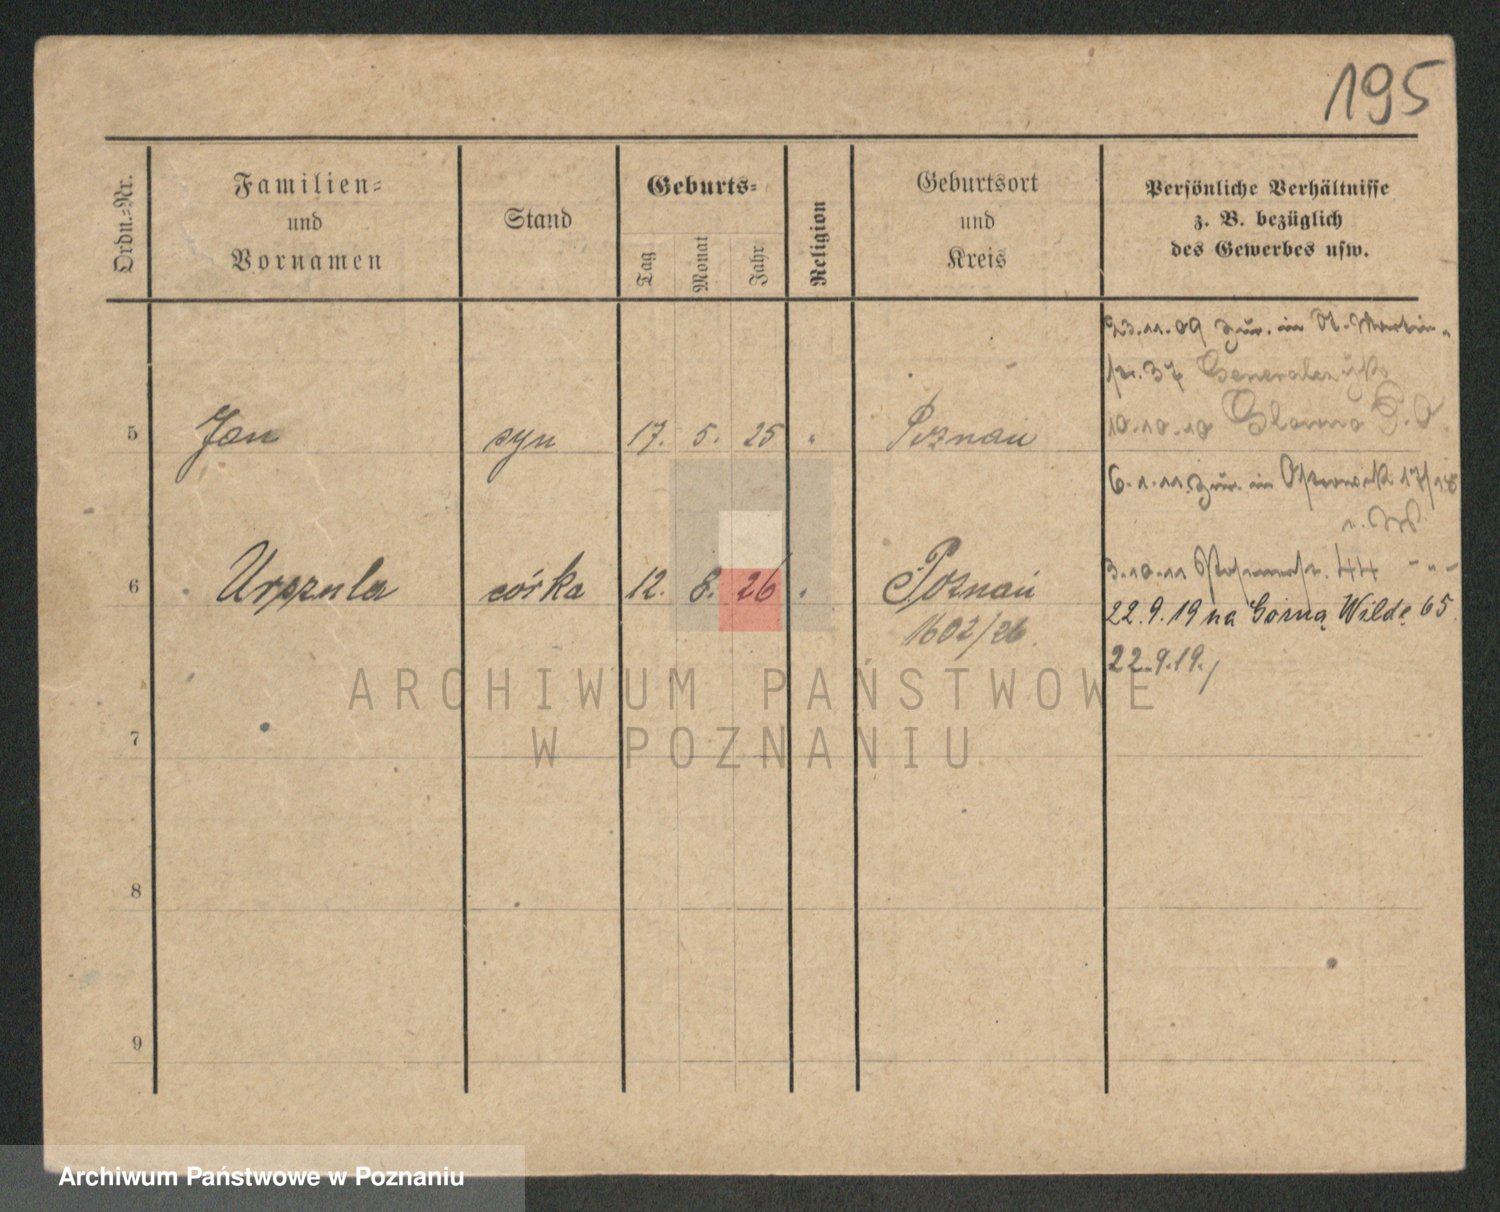 195
Ordn.=Nr.
Familien=
und
Vornamen
Stand
Geburts=
Tag
Monat
Jahr
Religion
Geburtsort
und
Kreis
Persönliche Verhältnisse
z. B. bezüglich
des Gewerbes usw.
23.11.09 zur. in St. Martin-
str. 37
10.10.10
5 Jan syn 17. 5. 25 " Poznań
6.1.11. zur. in 17/18
3.10.11 44 - " -
6 Urszula córka 12. 8. 26 " Poznań
1602/26
22.9.19 na Górną Wildę 65
22.9.19.
7
8
9
ARCHIWUM PAŃSTWOWE
W POZNANIU
Archiwum Państwowe w Poznaniu